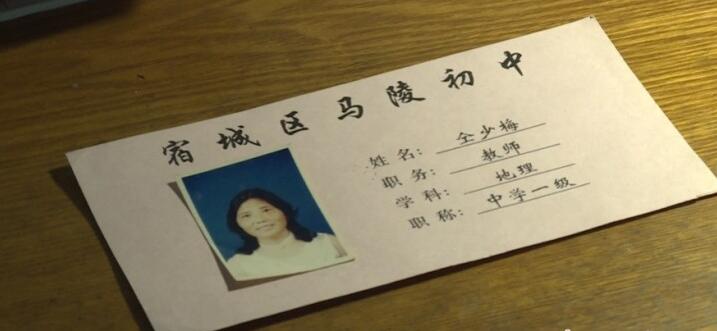 宿城区马陵初中
姓名：仝少梅
职务：教师
学科：地理
职称：中学一级